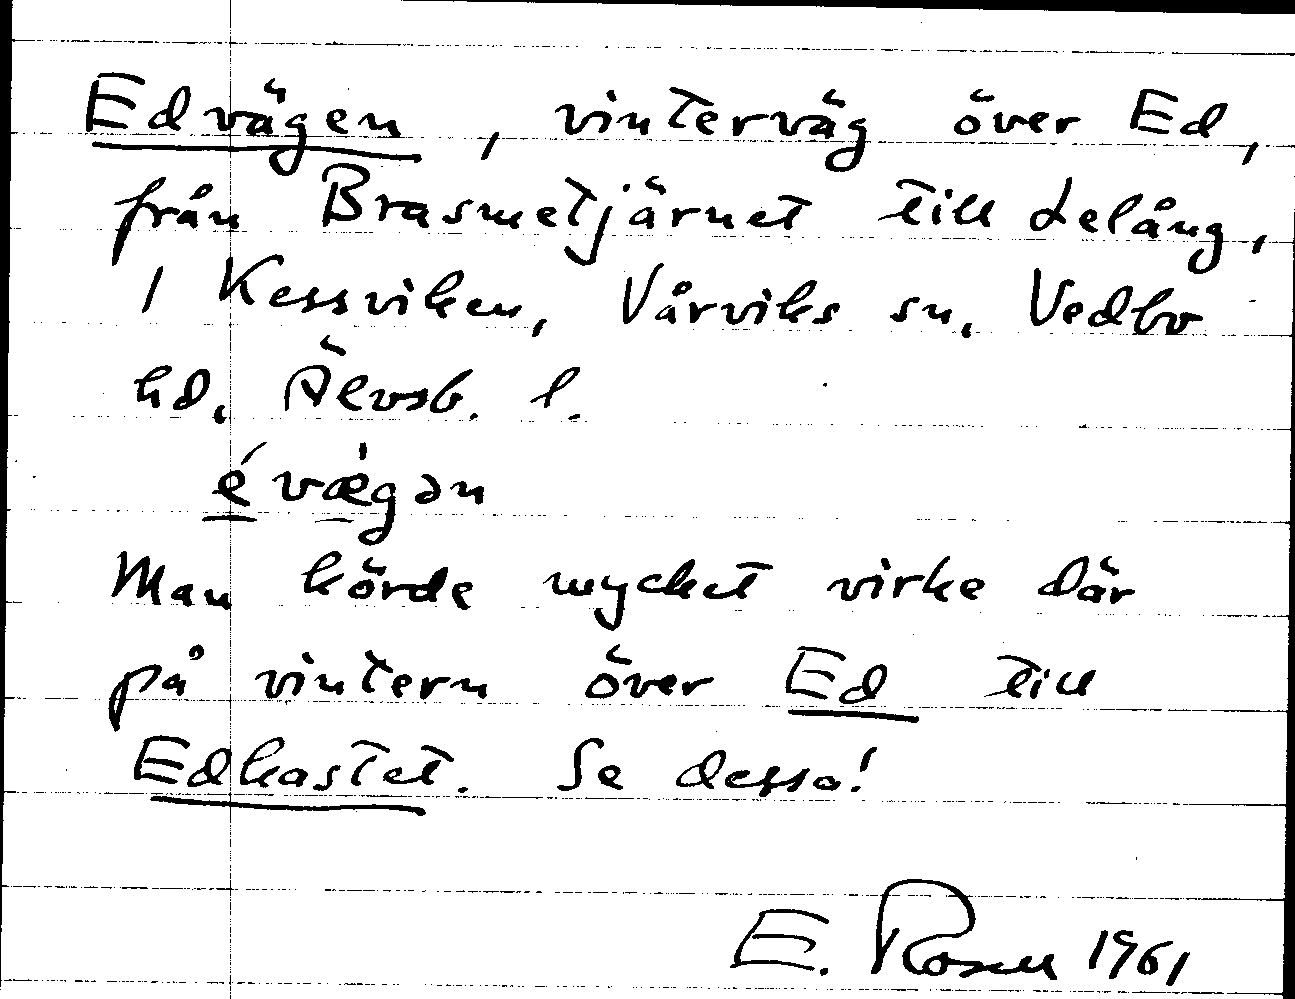 Edvägen, vinterväg över Ed,
från Brasmetjärnet till Lelång,
i Kessviken, Vårviks sn, Vedbo
hd, Älvsb. l.
é vægən
Man körde mycket virke där
på vintern över Ed till
Edkastet. Se dessa!
E. Rosell 1961